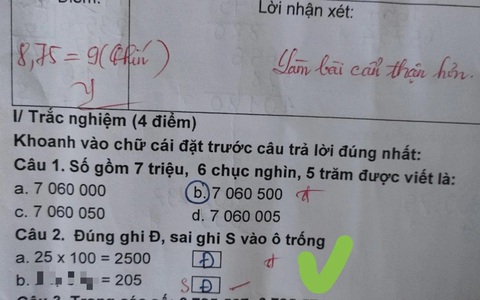 Điểm:
Lời nhận xét:
8,75 = 9 (Chín)
Làm bài cẩn thận hơn.
I/ Trắc nghiệm (4 điểm)
Khoanh vào chữ cái đặt trước câu trả lời đúng nhất:
Câu 1. Số gồm 7 triệu, 6 chục nghìn, 5 trăm được viết là:
a. 7 060 000 b. 7 060 500 đ
c. 7 060 050 d. 7 060 005
Câu 2. Đúng ghi Đ, sai ghi S vào ô trống
a. 25 x 100 = 2500 Đ đ
b. = 205 S Đ